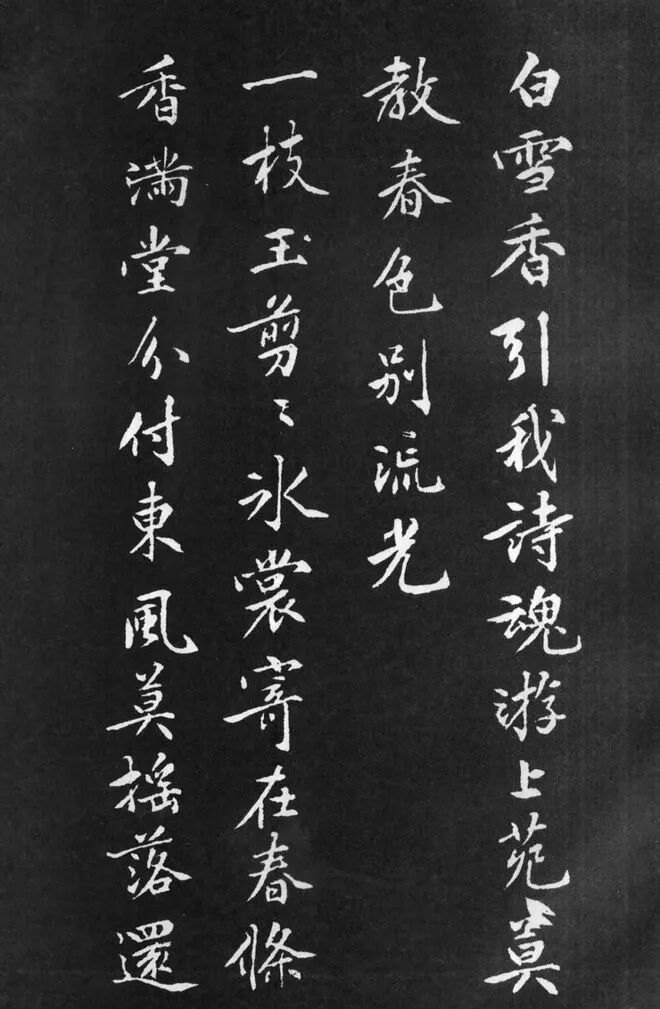 白雪香引我詩魂游上苑莫
教春色别流光
一枝玉剪〻氷裳寄在春條
香滿堂分付東風莫摇落還